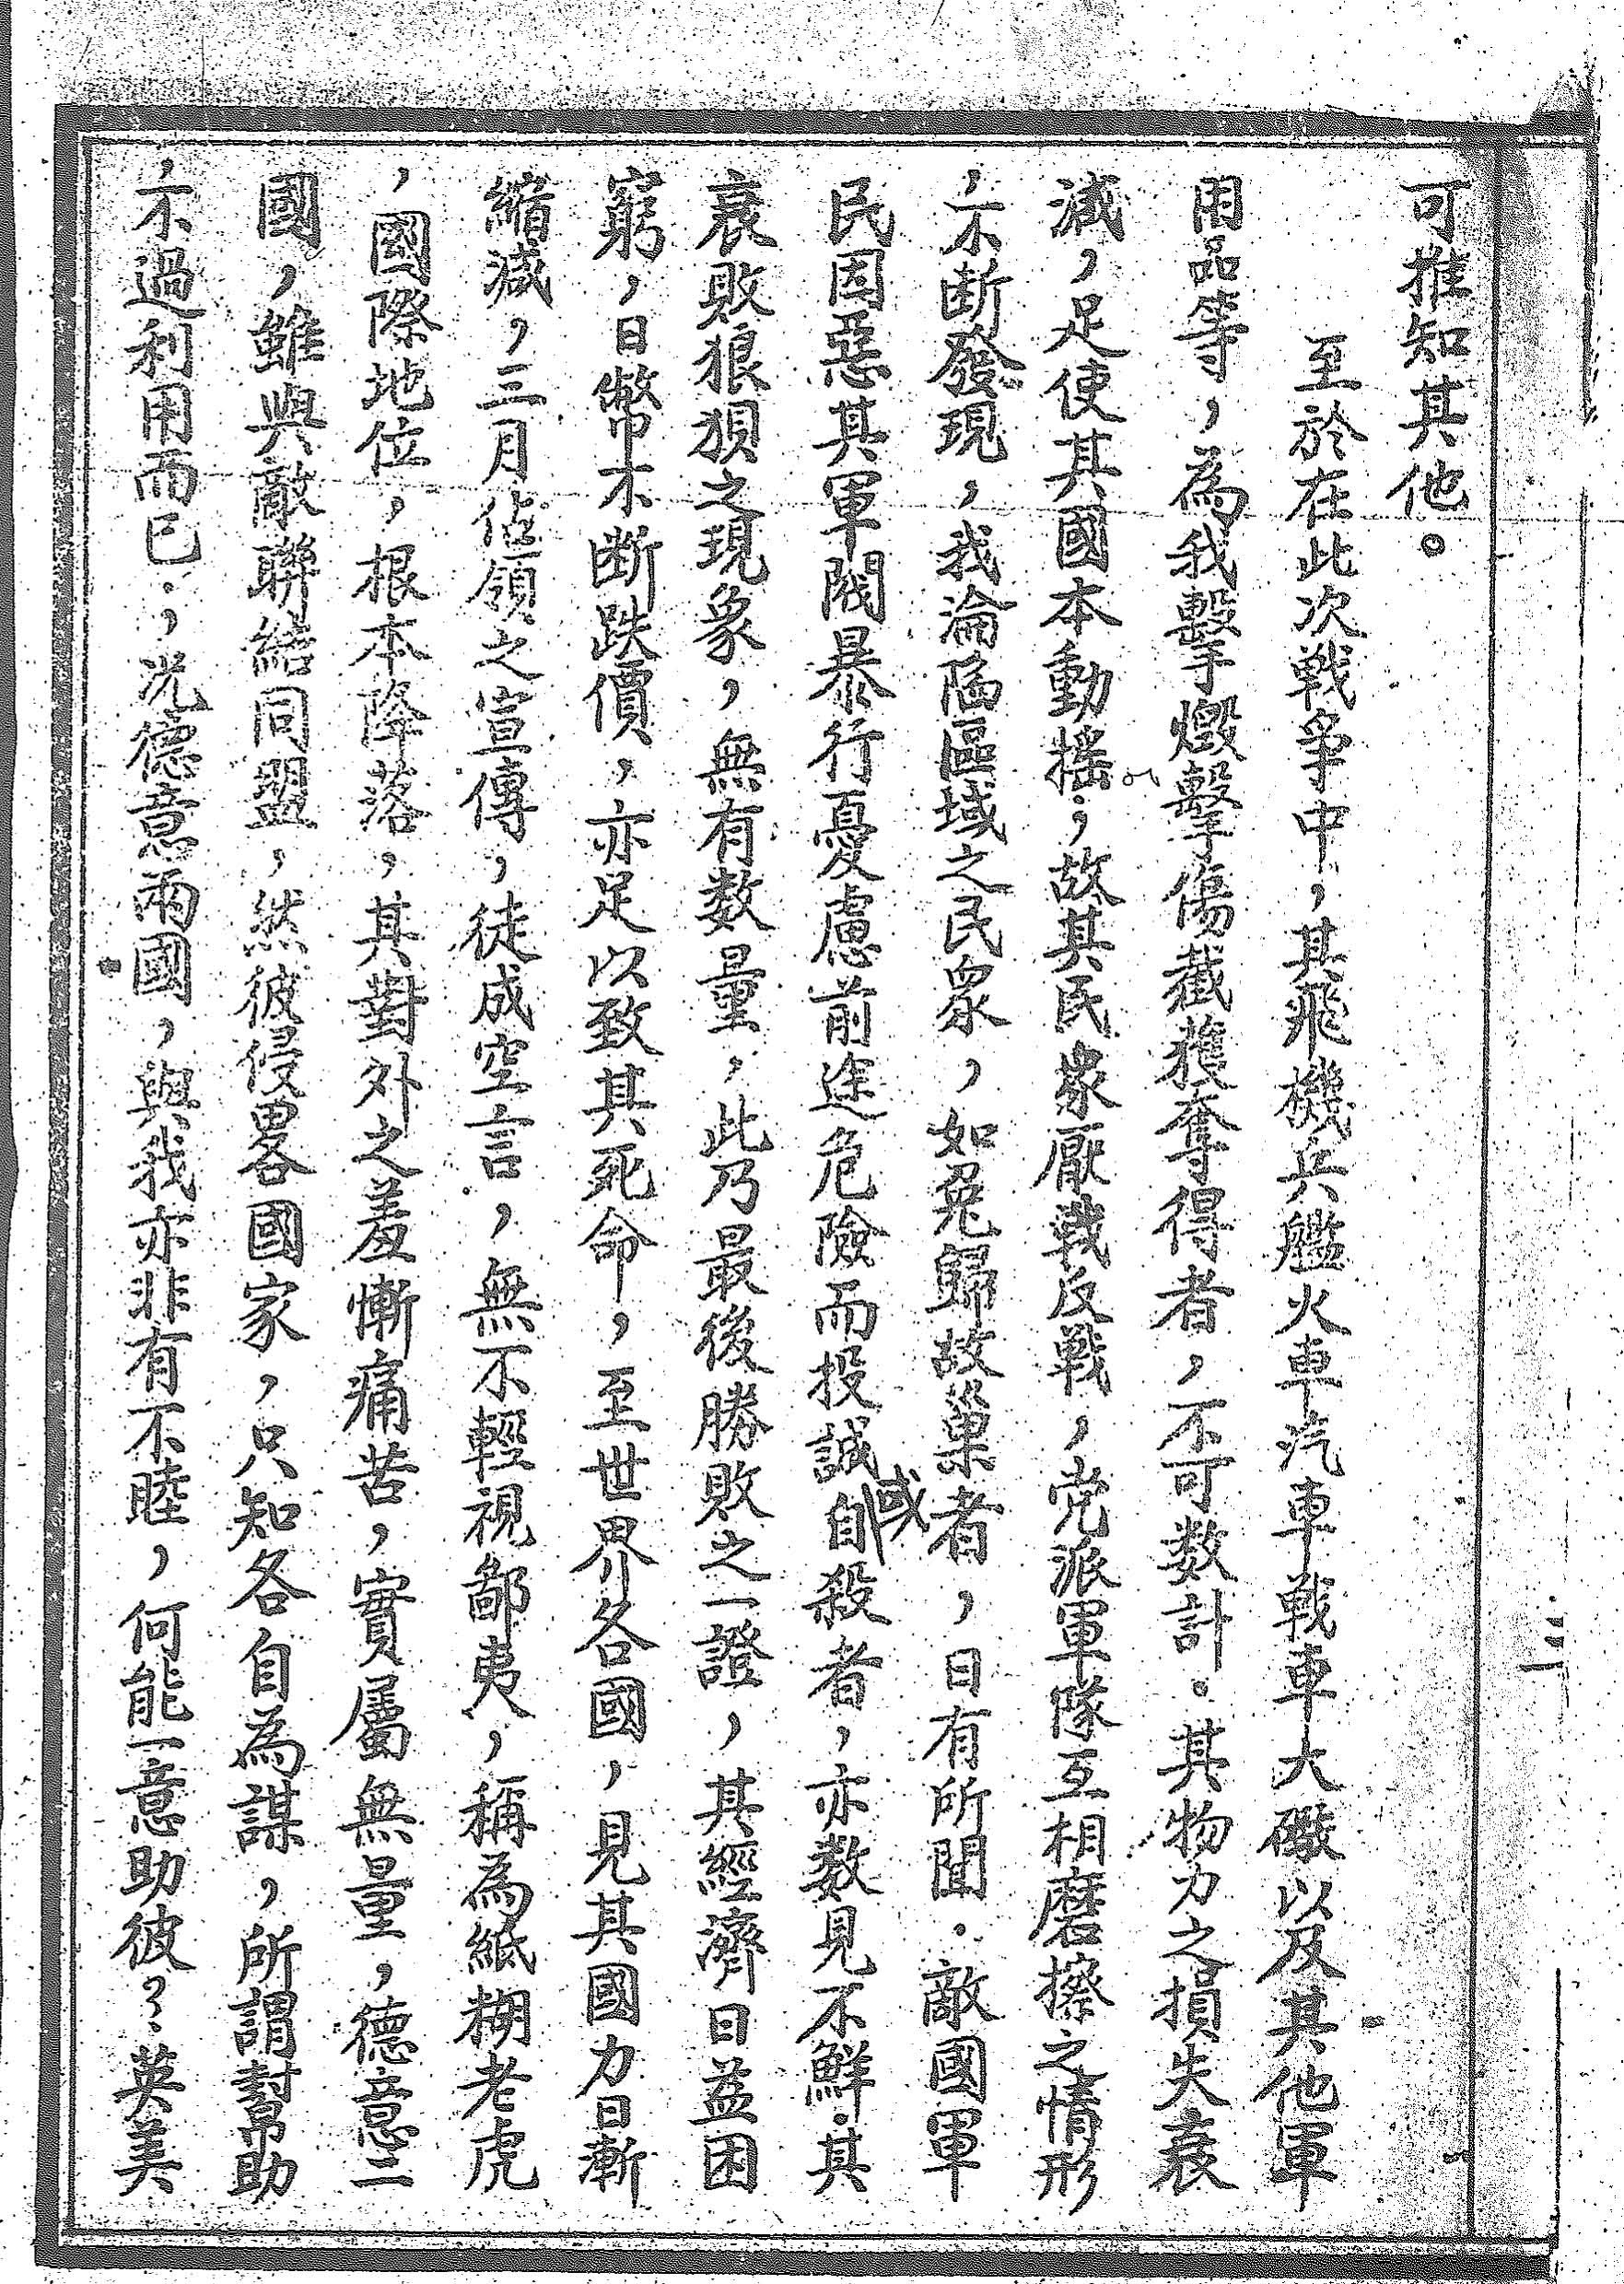 可推知其他。
至於在此次戰爭中，其飛機兵艦火車汽車戰車大礮以及其他軍
用品等，為我擊燬擊傷截獲奪得者，不可数計．其物力之損失衰
減，足使其國本動搖；故其民衆厭戰反戰，党派軍隊互相磨擦之情形
，不断發現，我淪陷區域之民衆，如兔歸故巢者，日有所聞．敵國軍
民因惡其軍閥暴行憂慮前途危險而投誠或自殺者，亦数見不鮮．其
衰敗狼狽之現象，無有数量，此乃最後勝敗之一證，其經濟日益困
窮，日幣不断跌價，亦足以致其死命，至世界各國，見其國力日漸
縮減，三月佔領之宣傳，徒成空言，無不輕視鄙夷，稱為紙糊老虎
，國際地位，根本降落，其對外之羞慚痛苦，實屬無量，德意三
國，雖與敵聯結同盟，然彼侵畧國家，只知各自為謀，所謂幫助
，不過利用而已．，况德意兩國，與我亦非有不睦，何能一意助彼？英美
三